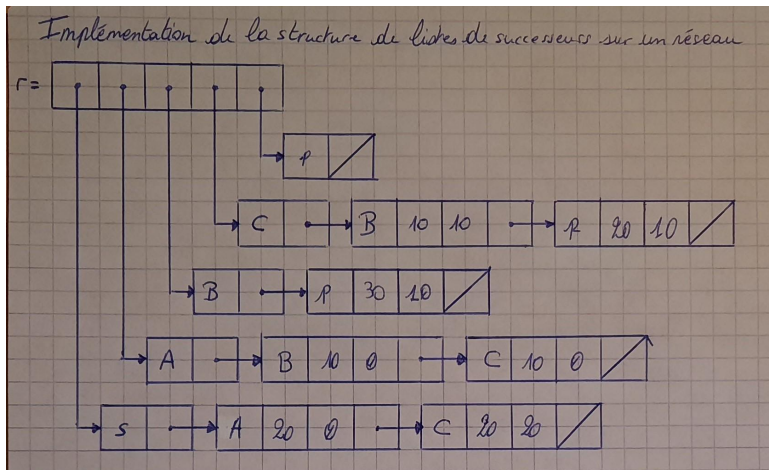 Implémentation de la structure de listes de successeurs sur un réseau
r=
P
C B 10 10 P 20 10
B P 30 10
A B 10 0 C 10 0
S A 20 0 C 20 20